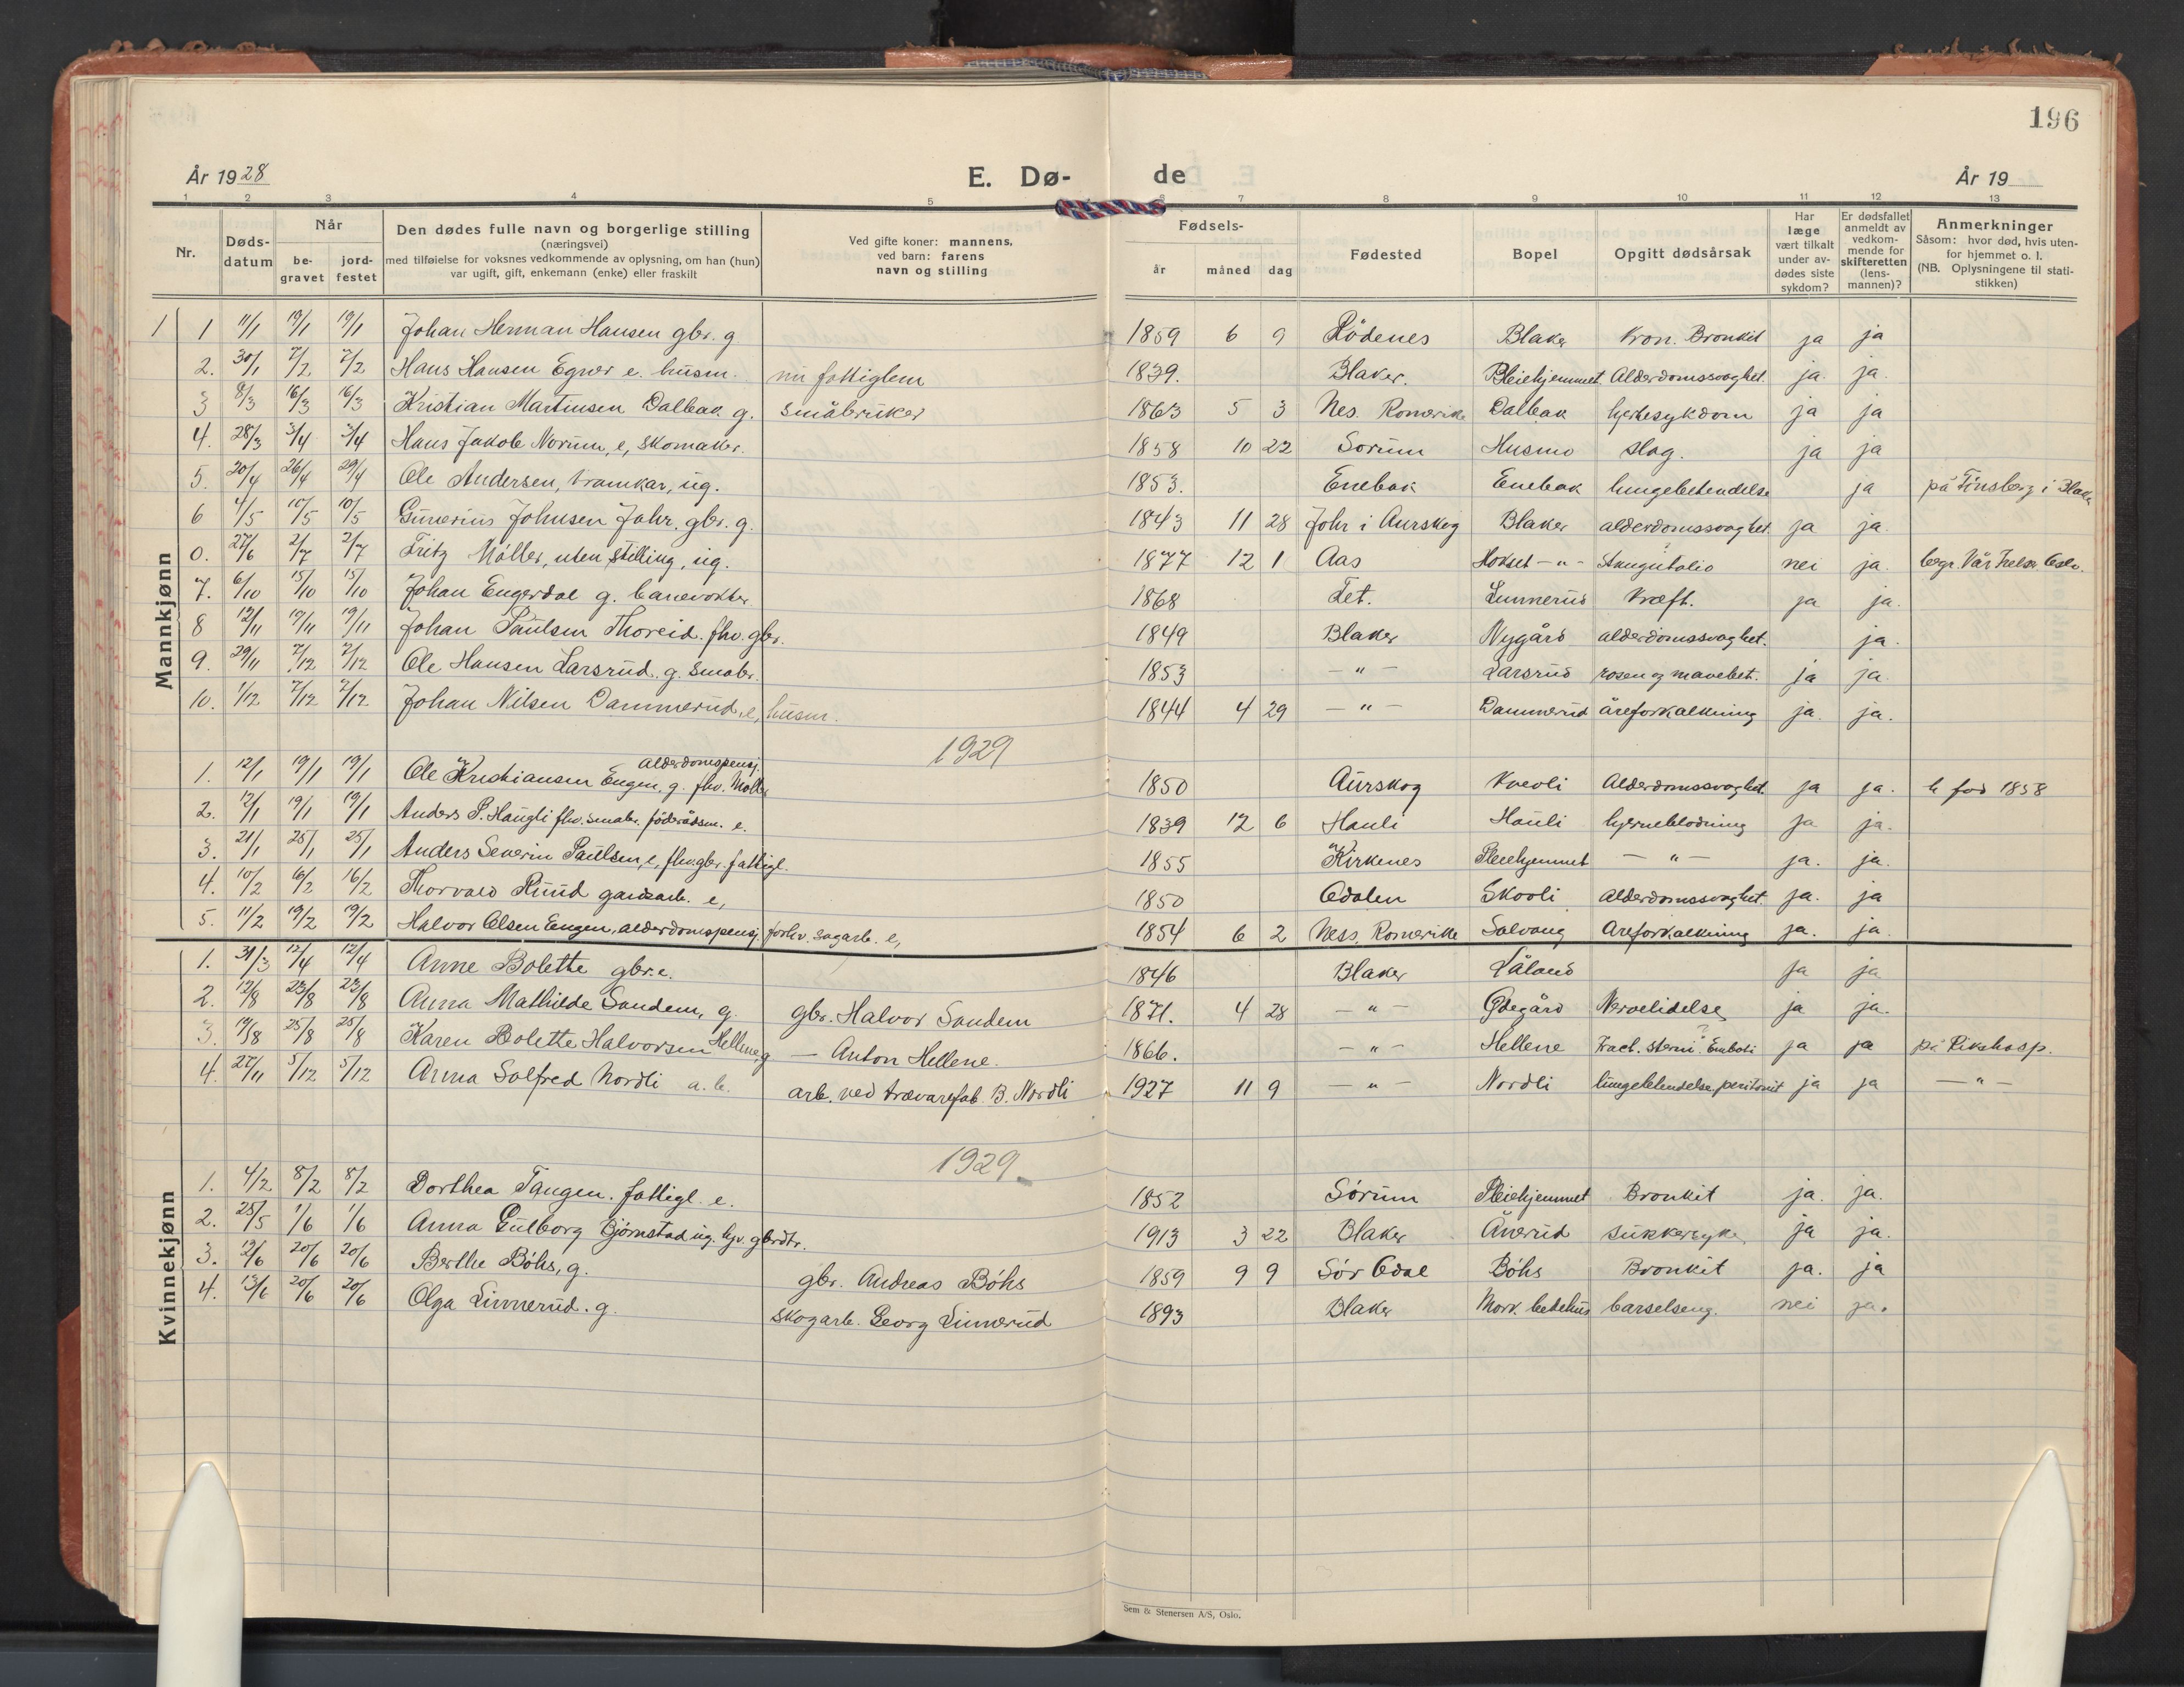 196
År 1928 E. Dø- de År 19
1 2 3 4 5 6 7 8 9 10 11 12 13
Nr. Døds-datum Når begravet jordfestet Den dødes fulle navn og borgerlige stilling (næringsvei) med tilføielse for voksnes vedkommende av oplysning, om han (hun) var ugift, gift, enkemann (enke) eller fraskilt Ved gifte koner: mannens, ved barn: farens navn og stilling Fødsels- år måned dag Fødested Bopel Opgitt dødsårsak Har læge vært tilkalt under avdødes siste sykdom? Er dødsfallet anmeldt av vedkommende for skifteretten (lensmannen)? Anmerkninger Såsom: hvor død, hvis utenfor hjemmet o. l. (NB. Oplysningene til statistikken)
Mannkjønn
1 1 11/1 19/1 19/1 Johan Herman Hansen gbr. g 1859 6 9 Rödenes Blaker Kron. Bronkit ja ja
2. 30/1 7/2 7/2 Hans Hansen Egner e. husm. nu fattiglem 1839. Blaker. Pleiehjemmet Alderdomssvaghet. ja. ja.
3 8/3 16/3 16/3 Kristian Martinsen Dalbak g. småbruker 1863 5 3 Nes. Romerike Dalbak hjertesykdom ja ja
4. 28/3 3/4 3/4 Hans Jakob Norum, e, skomaker. 1858 10 22 Sorum Husmo slag. ja ja
5. 20/4 26/4 29/4 Ole Andersen, kramkar, ug. 1853. Enebak Enebak lungebetendelse ja på Tinsberg i Blaker
6 4/5 10/5 10/5 Gunerius Johnsen Johr. gbr. g. 1843 11 28 Johr i Aurskog Blaker alderdomssvaghet. ja ja.
0. 27/6 2/7 2/7 Fritz Möller, uten stilling, ug. 1877 12 1 Aas Hokset - " - Strangulatio nei ja. begr. Vår Frelser Oslo.
7. 6/10 15/10 15/10 Johan Engerdal g. banevokter 1868 Fet. Linnerud Kræft. ja ja.
8 12/11 19/11 19/11 Johan Paulsen Thoreid. fhv. gbr. 1849 Blaker Nygård alderdomssvaghet. ja.
9. 29/11 7/12 7/12 Ole Hansen Larsrud. g. småbr. 1853 - " - Larsrud rosen og mavebet. ja ja.
10. 1/12 7/12 7/12 Johan Nilsen Dammerud, e, husm. 1844 4 29 - " - Dammerud åreforkalkning ja. ja.
1929
1. 12/1 19/1 19/1 Ole Kristiansen Engen, g. fhv. Möller alderdomspensj. 1850 Aurskog Kveoli Alderdomssvaghet. ja ja. h. fød 1858
2. 12/1 19/1 19/1 Anders P. Haugli fhv. småbr. föderådsm. e. 1839 12 6 Hauli Hauli hjerneblödning ja ja.
3. 21/1 25/1 25/1 Anders Severin Paulsen, e, fhv. gbr. fattigl. 1855 Kirkenes Pleiehjemmet - " - ja. ja.
4. 10/2 16/2 16/2 Thorvald Ruud gardsarb. e, 1850 Odalen Skovli alderdomssvaghet. ja. ja
5. 11/2 19/2 19/2 Halvor Olsen Engen, alderdomspensj. forhv. sagarb. e, 1854 6 2 Ness, Romerike Solvang Åreforkalkning ja. ja.
Kvinnekjønn
1. 31/3 12/4 12/4 Anne Bolette gbr. e. 1846 Blaker Våland ja ja
2. 12/8 23/8 23/8 Anna Mathilde Sandem, g. gbr. Halvor Sandem 1871. 4 28 - " - Ødegård Nervelidelse ja ja.
3. 19/8 25/8 25/8 Karen Bolette Halvorsen Hellene, g - Anton Hellene. 1866. - " - Hellene Fract. sterni. Emboli ja ja på Rikshosp.
4. 27/11 5/12 5/12 Anna Solfred Nordli a. b. arb. ved trævarefab. B. Nordli 1927 11 9 - " - Nordli lungebetendelse, peritonit ja ja - " -
1929
1. 4/2 8/2 8/2 Dorthea Tangen. fattigl. e. 1852 Sörum Pleiehjemmet Bronkit ja. ja.
2. 25/5 1/6 1/6 Anna Gulborg Bjørnstad ug. hjv. gbrdtr. 1913 3 22 Blaker Ånerud sukkersyke ja ja.
3. 12/6 20/6 20/6 Berthe Böhs, g. gbr. Andreas Böhs 1859 9 9 Sör Odal Böhs Bronkit ja. ja
4. 13/6 20/6 20/6 Olga Linnerud. g. skogarb. Georg Linnerud 1893 Blaker Mork. bedehus barselseng. nei ja.
Sem & Stenersen A/S, Oslo.